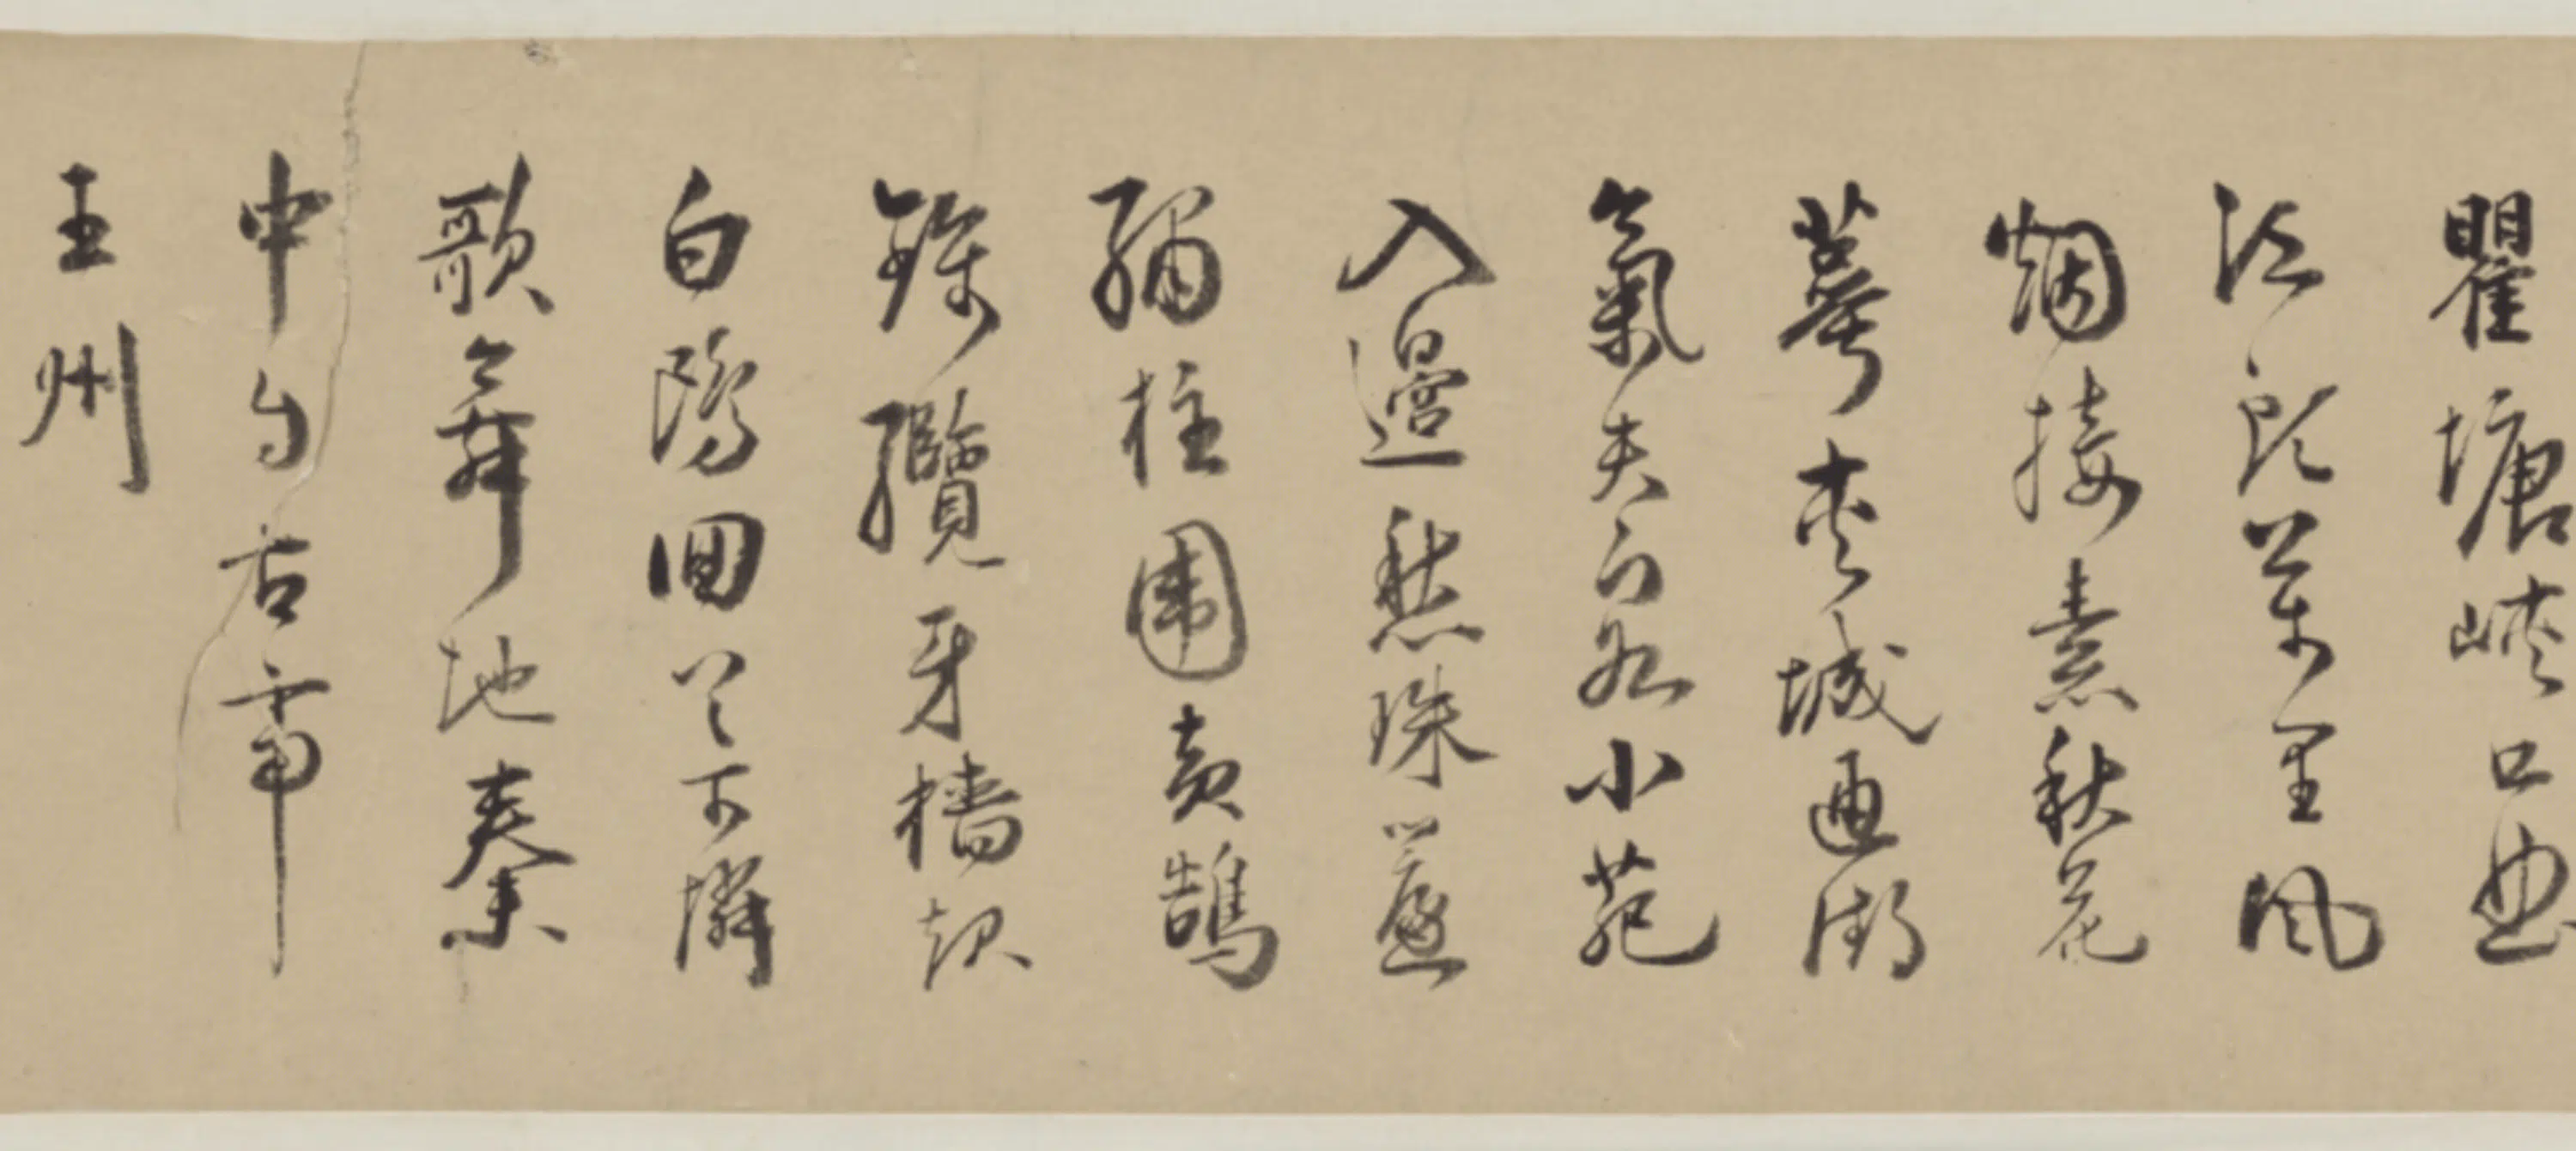 瞿塘峽口曲
江頭萬里風
烟接素秋花
萼夾城通御
氣夫容小苑
入邊愁珠簾
繡柱圍黃鵠
錦纜牙檣起
白鷗回首可憐
歌舞地秦
中自古帝
王州